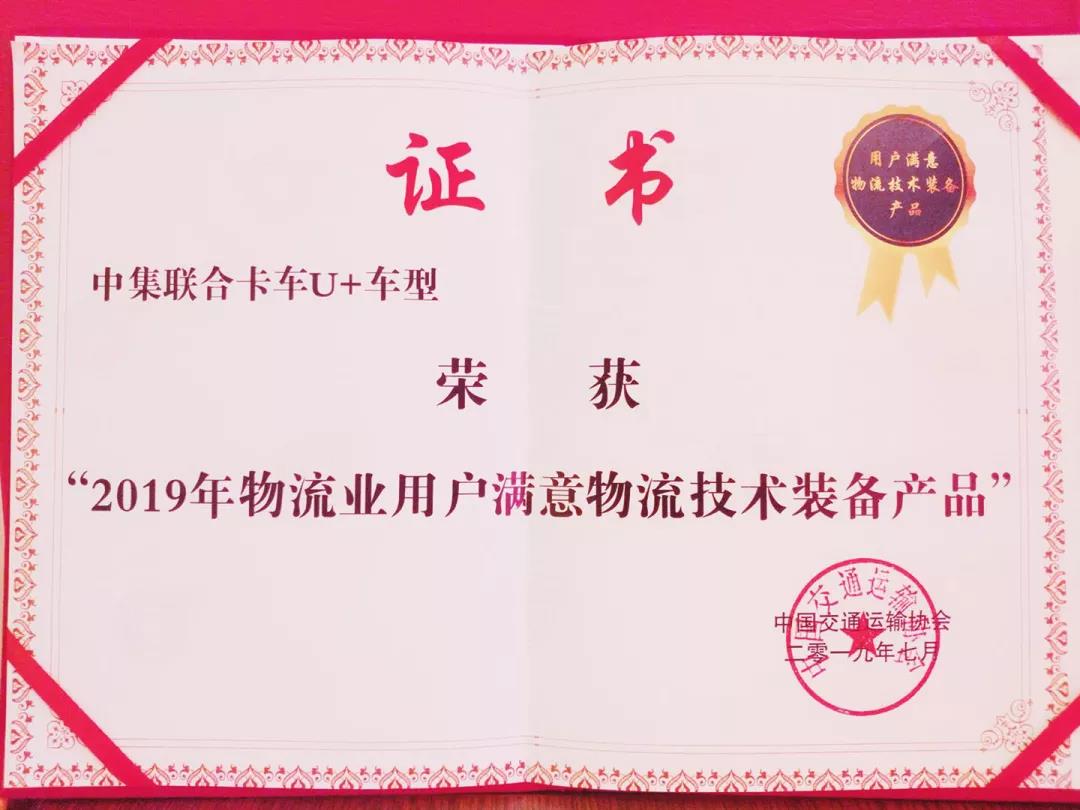 证书
用户满意
物流技术装备
产品
中集联合卡车U+车型
荣获
“2019年物流业用户满意物流技术装备产品”
中国交通运输协会
中国交通运输协会
二零一九年七月